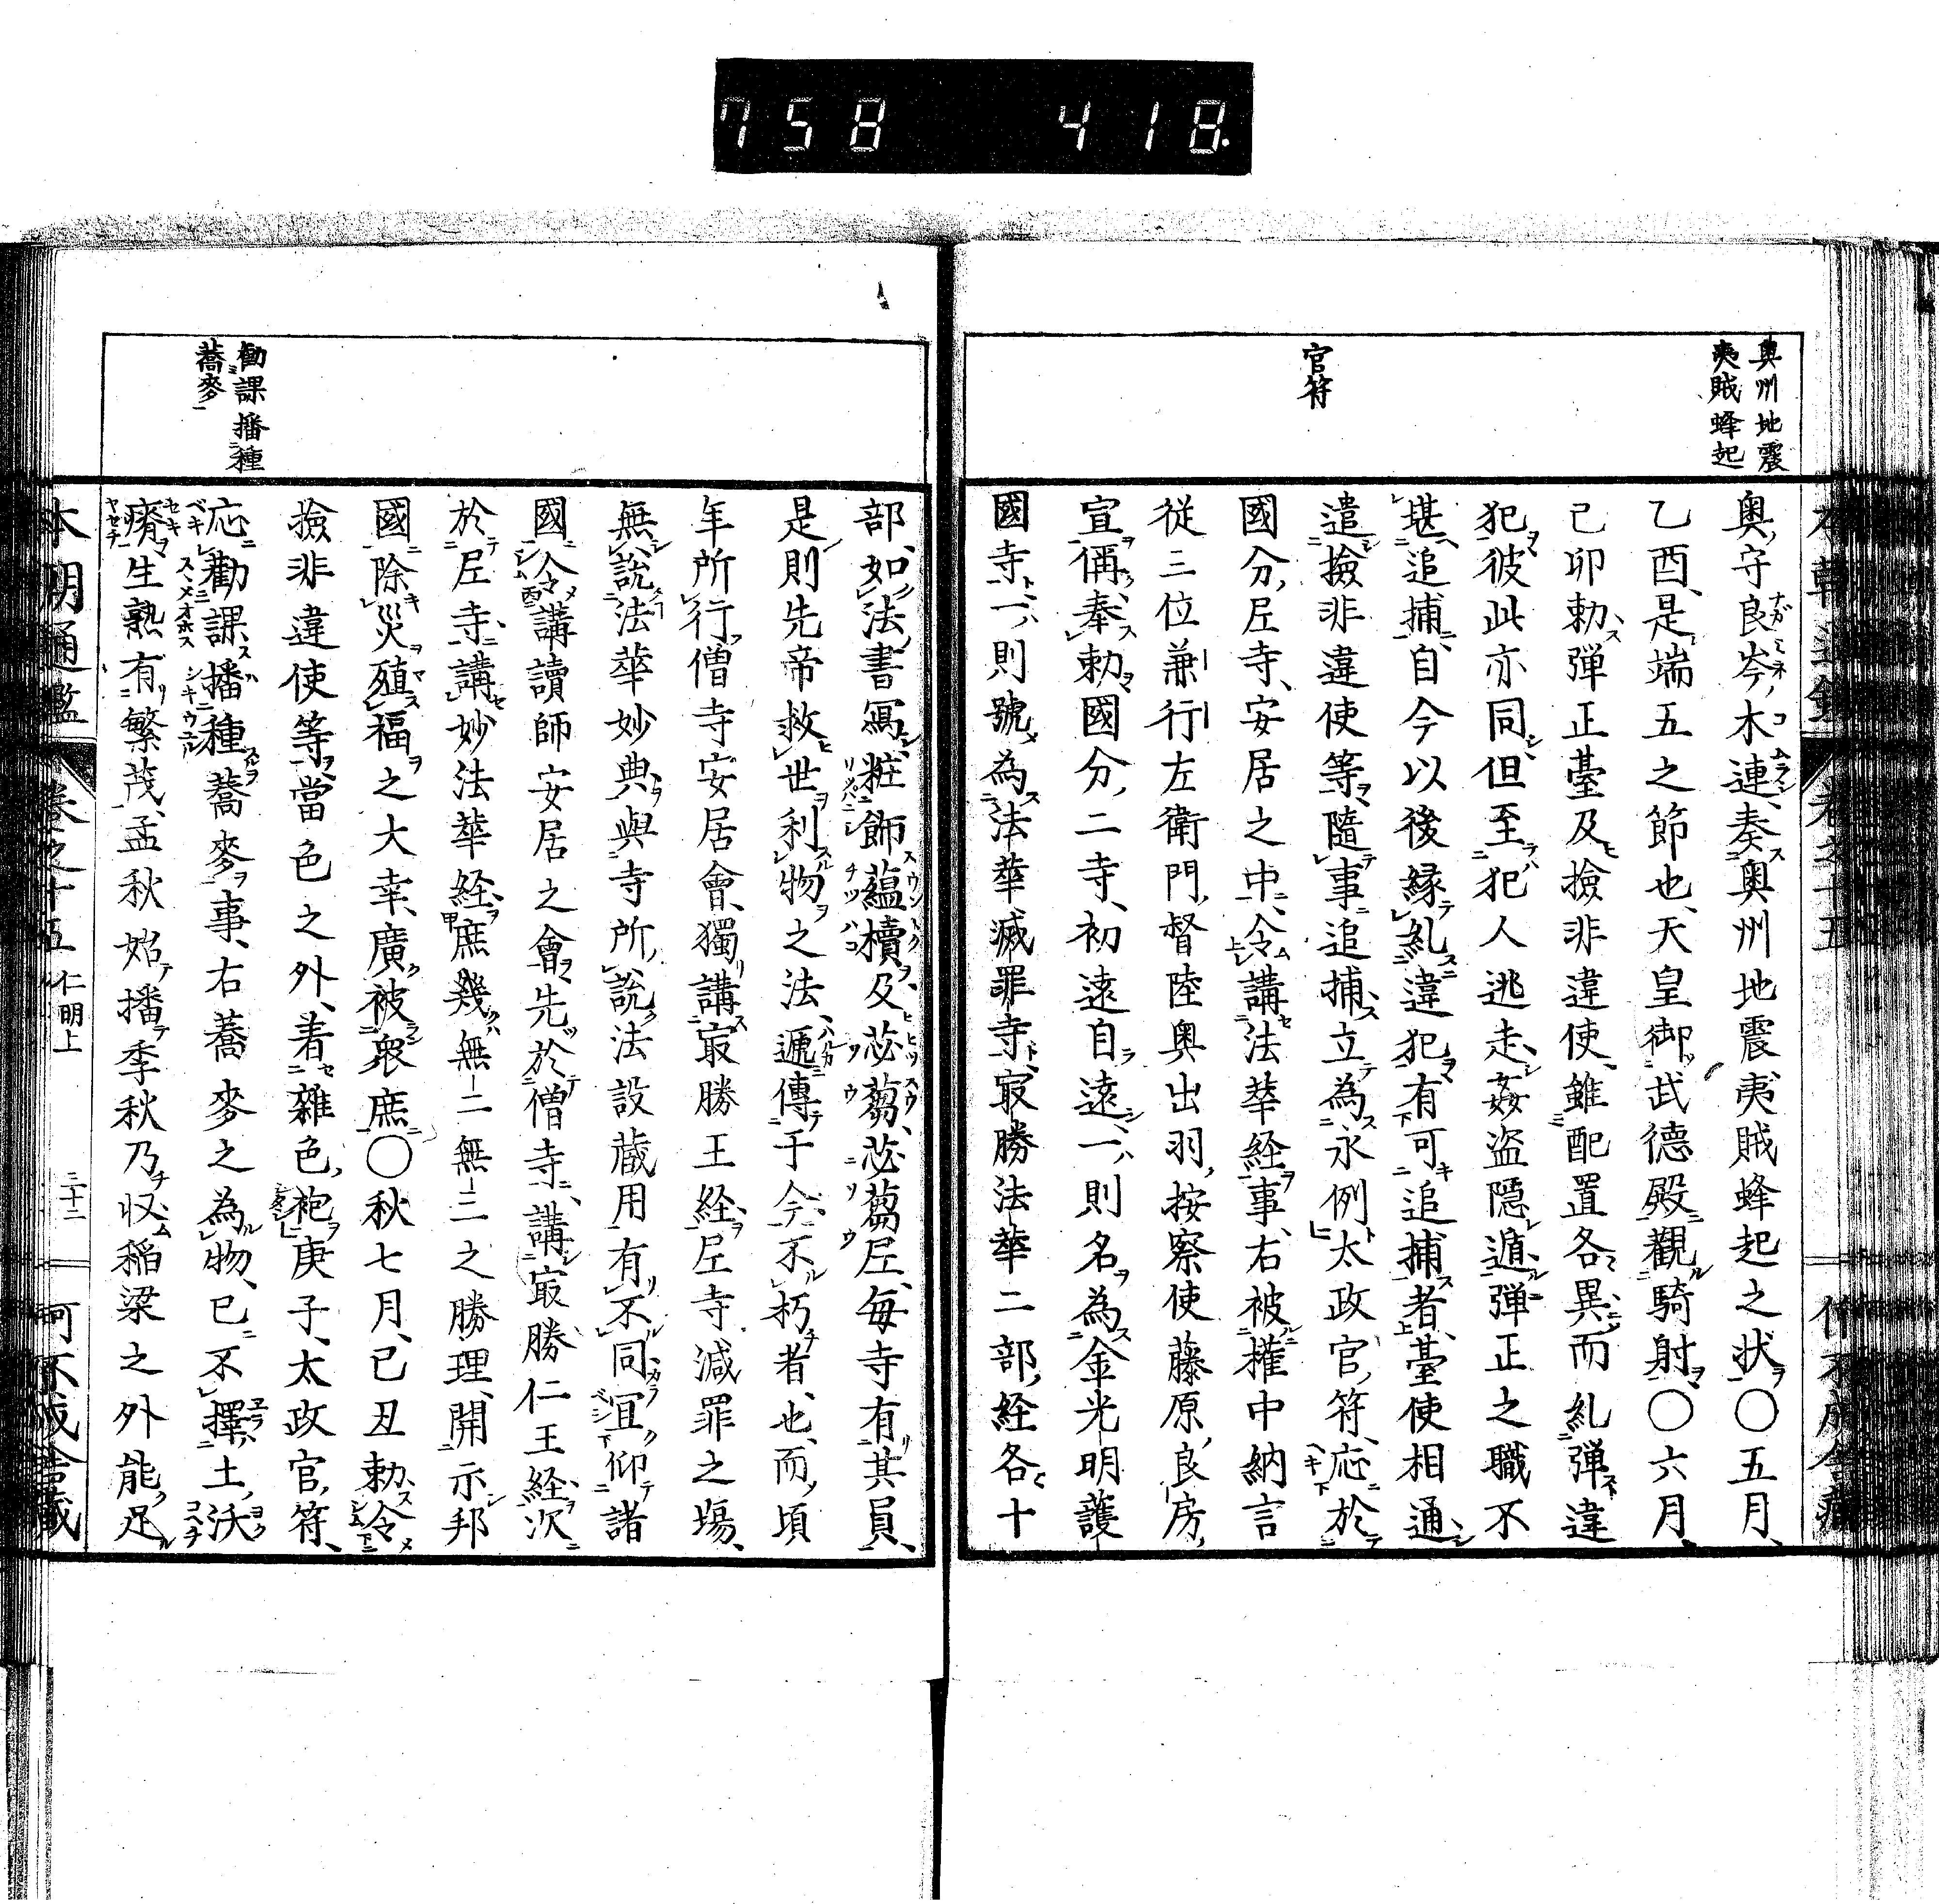 758 418
奥州地震
夷賊蜂起
官符
奥守良岑木連奏奥州地震夷賊蜂起之状○五月
乙酉是端五之節也天皇御武德殿觀騎射○六月
己卯勅弾正臺及撿非違使雖配置各異而糺弾違
犯彼此亦同但至犯人逃走姦盗隠遁弾正之職不
堪追捕自今以後縁糺違犯有可追捕者臺使相通
遣撿非違使等隨事追捕立為永例太政官符応於
國分尼寺安居之中令講法華経事右被權中納言
従三位兼行左衛門督陸奥出羽按察使藤原良房
宣偁奉勅國分二寺初遠自遠一則名為金光明護
國寺一則號為法華滅罪寺㝡勝法華二部経各十
勸課播種
蕎麥
部如法書寫粧飾蘊櫝及苾蒭苾蒭尼毎寺有其員
是則先帝救世利物之法遞傳于今不朽者也而頃
年所行僧寺安居會獨講㝡勝王経尼寺滅罪之塲
無說法華妙典與寺所說法設蔵用有不同冝仰諸
國令講讀師安居之會先於僧寺講㝡勝仁王経次
於尼寺講妙法華経庶幾無二無三之勝理開示邦
國除災殖福之大幸廣被衆庶○秋七月己丑勅令
撿非違使等當色之外著雜色袍庚子太政官符
応勸課播種蕎麥事右蕎麥之為物已不擇土沃
瘠生熟有繁茂孟秋始播季秋乃収稲梁之外能足
本朝通鑑 卷之十五 仁明上 三十二